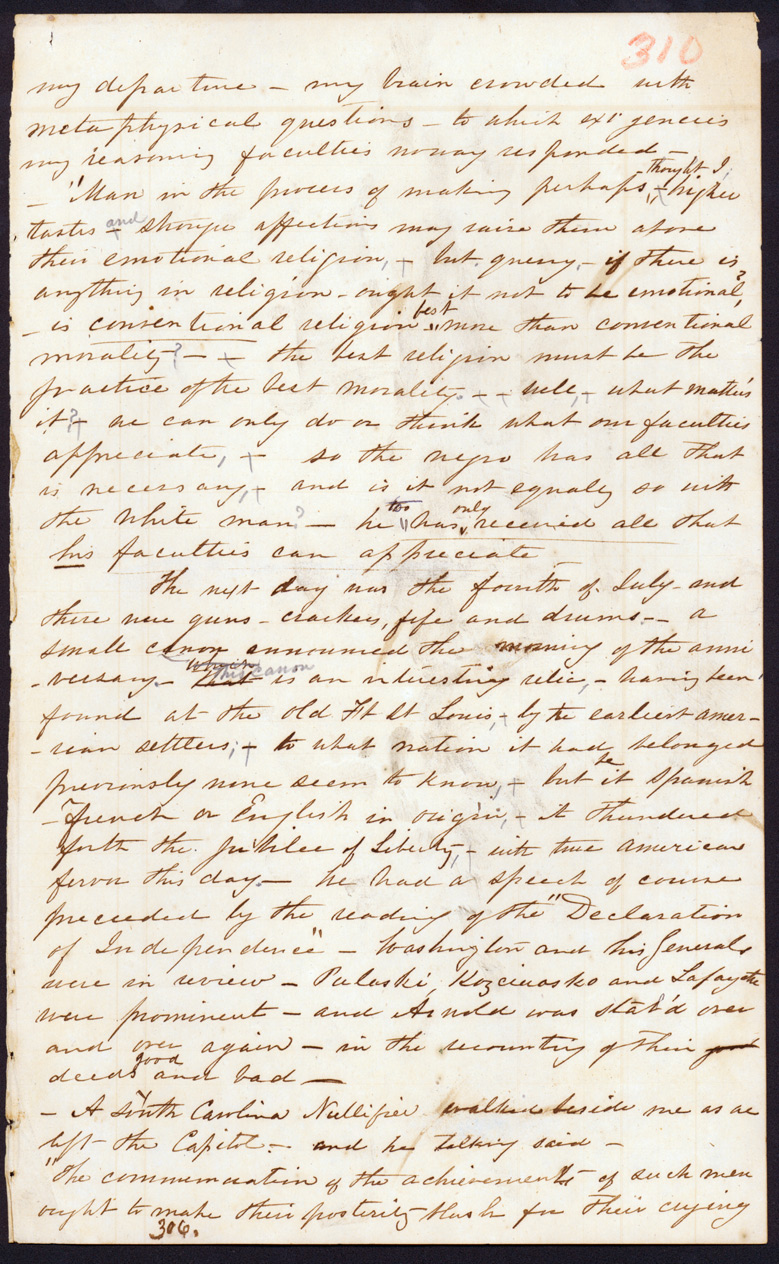 310
my departure – my brain crowded with
metaphysical questions – to which exigencies
my reasoning faculties noway responded –
– "Man in the process of making perhaps, thought I, – higher
tastes and stronger affections may raise them above
their emotional religion, – but query, – if there is
anything in religion – ought it not to be emotional?
– is conventional religion best, more than conventional
morality? – – the best religion must be the
practice of the best morality. – – well, – what matters
it? – we can only do or think what our faculties
appreciate, – so the negro has all that
is necessary, – and is it not equally so with
the white man? – he too has only received all that
his faculties can appreciate –
The next day was the fourth of July – and
there were guns – crackers, fife and drums – – a
small canon announced the morning of the anni
-versary. – This canon is an interesting relic, – having been
found at the old Ft St Louis, – by the earliest Amer-
-ican settlers; – to what nation it had belonged
previously none seem to know, – but be it Spanish
– French or English in origin, – it thundered
forth the Jubilee of Liberty, – with true American
fervor this day. – we had a speech of course
preceeded by the reading of the "Declaration
of Independence" – Washington and his Generals
were in review – Pulaski, Kozciuosko and Lafayette
were prominent – and Arnold was stab'd over
and over again – in the recounting of their good
deeds good and bad –
– A South Carolina Nullifier walked beside me as we
left the Capitol – and he talking said –
"The commemoration of the achievements of such men
ought to make their posterity blush for their crying
306.